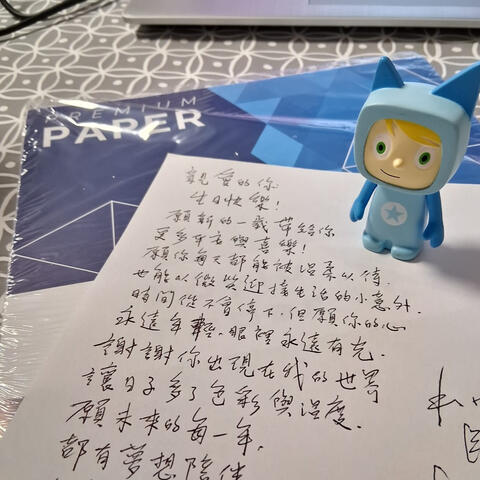 PREMIUM
PAPER
親愛的你
生日快樂！
願新的一歲帶給你
更多平安與喜樂！
願你每天都能被溫柔以待.
也能以微笑迎接生活的小意外.
時間從不會停下.但願你的心
永遠年輕.眼裡永遠有光.
謝謝你出現在我的世界
讓日子多了色彩與溫度.
願未來的每一年.
都有夢想陪伴